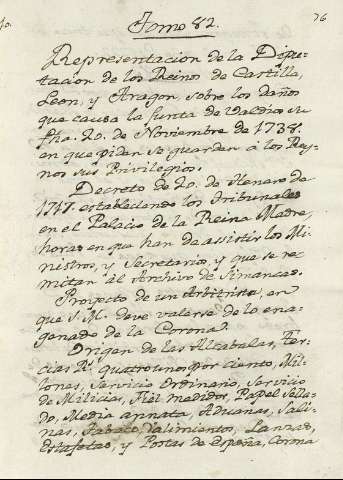 Tomo 82.
76
Representacion de la Dipu-
tacion de los Reinos de Castilla,
Leon, y Aragon, sobre los daños
que causa la Junta de Valdios su
fha. 20. de Noviembre de 1738.
en que piden se guarden á los Rey-
nos sus Privilegios.
Decreto de 20. de Henero de
1717. estableciendo los Tribunales
en el Palacio de la Reina Madre,
horas en que han de asistir los Mi-
nistros, y Secretarios, y que se re-
mitan al Archivo de Simancas.
Proyecto de un Arbitrista, en
que S. M. deve valerse de lo ena-
genado de la Corona.
Origen de las Alcabalas, Ter-
cias Rs. quatro unos por ciento, Mi-
llones, Servicio Ordinario, Servicio
de Milicias, Fiel medidor, Papel Sella-
do, Media annata, Aduanas, Sali-
nas, Tabaco, Valimientos, Lanzas,
Estafetas, y Postas de España, Corona